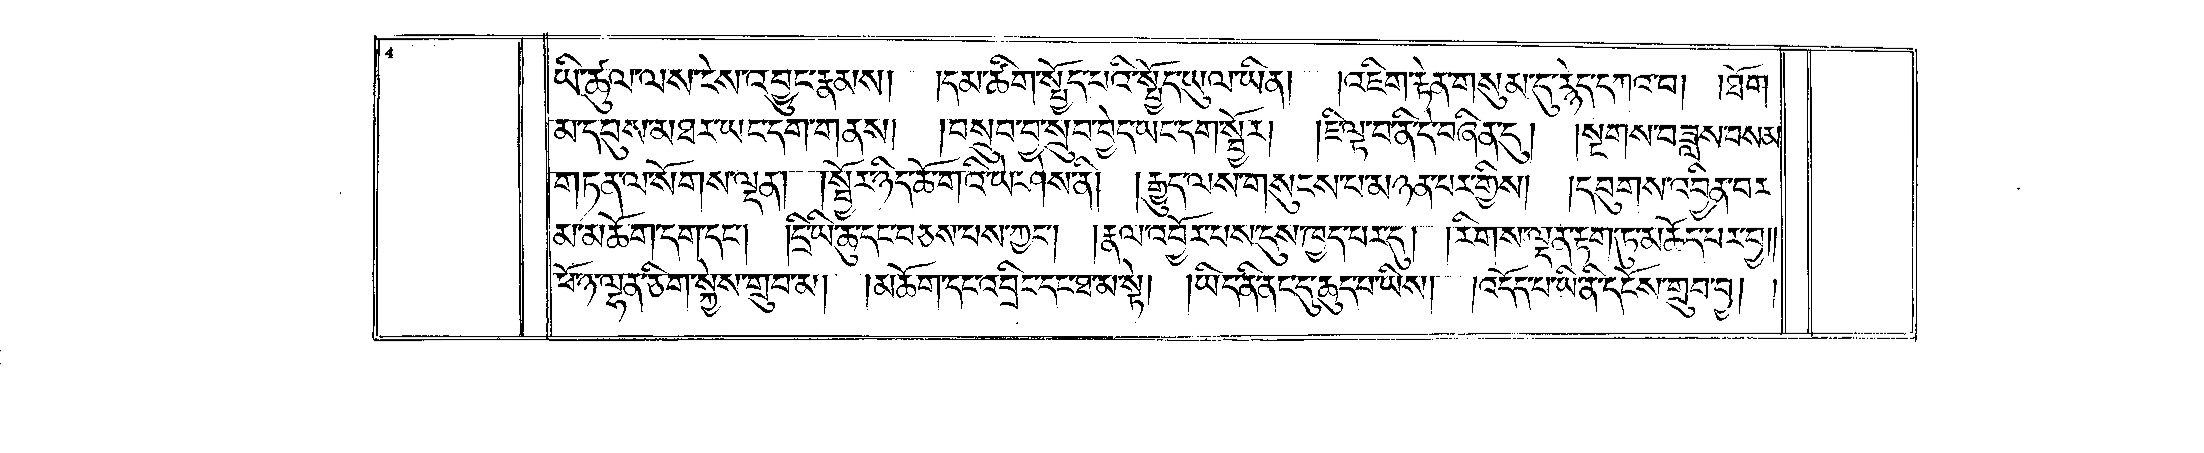 4
ཡི་ཚུལ་ལས་ངེས་འབྱུང་རྣམས། །དམ་ཚིག་སྤྱོད་པའི་སྤྱོད་ཡུལ་ཡིན། །འཇིག་རྟེན་གསུམ་དུ་རྙེད་དཀའ་བ། །ཐོག
མ་དབུས་མ་ཐར་ཡང་དག་གནས། །བསྲུབ་བྱ་སྲུབ་བྱེད་ཡང་དག་སྦྱོར། །ཇི་ལྟ་བ་ནི་དེ་བཞིན་དུ། །སྔགས་བཟླས་བསམ
གཏན་ལ་སོགས་ལྡན། །སྦྱོར་ཉིད་ཆོ་གའི་ཡེ་ཤེས་ནི། །རྒྱུད་ལས་གསུངས་པ་མཉན་པར་གྱིས། །དབུགས་འབྱིན་བར
མ་མཆོག་དག་དང་། །དྲི་ཡི་ཆུ་དང་བཅས་པས་ཀྱང་། །རྣལ་འབྱོར་པས་དུས་ཁྱད་པར་དུ། །རིགས་ལྡན་རྟག་ཏུ་མཆོད་པར་བྱ།།
ཕོ་ཉ་ལྷན་ཅིག་སྐྱེས་གྲུབ་མ། །མཆོག་དང་འབྲིང་དང་ཐ་མ་སྟེ། །ཡིད་ནི་ནང་དུ་ཆུད་པ་ཡིས། །འདོད་པ་ཡི་ནི་དངོས་གྲུབ་བྱ། །